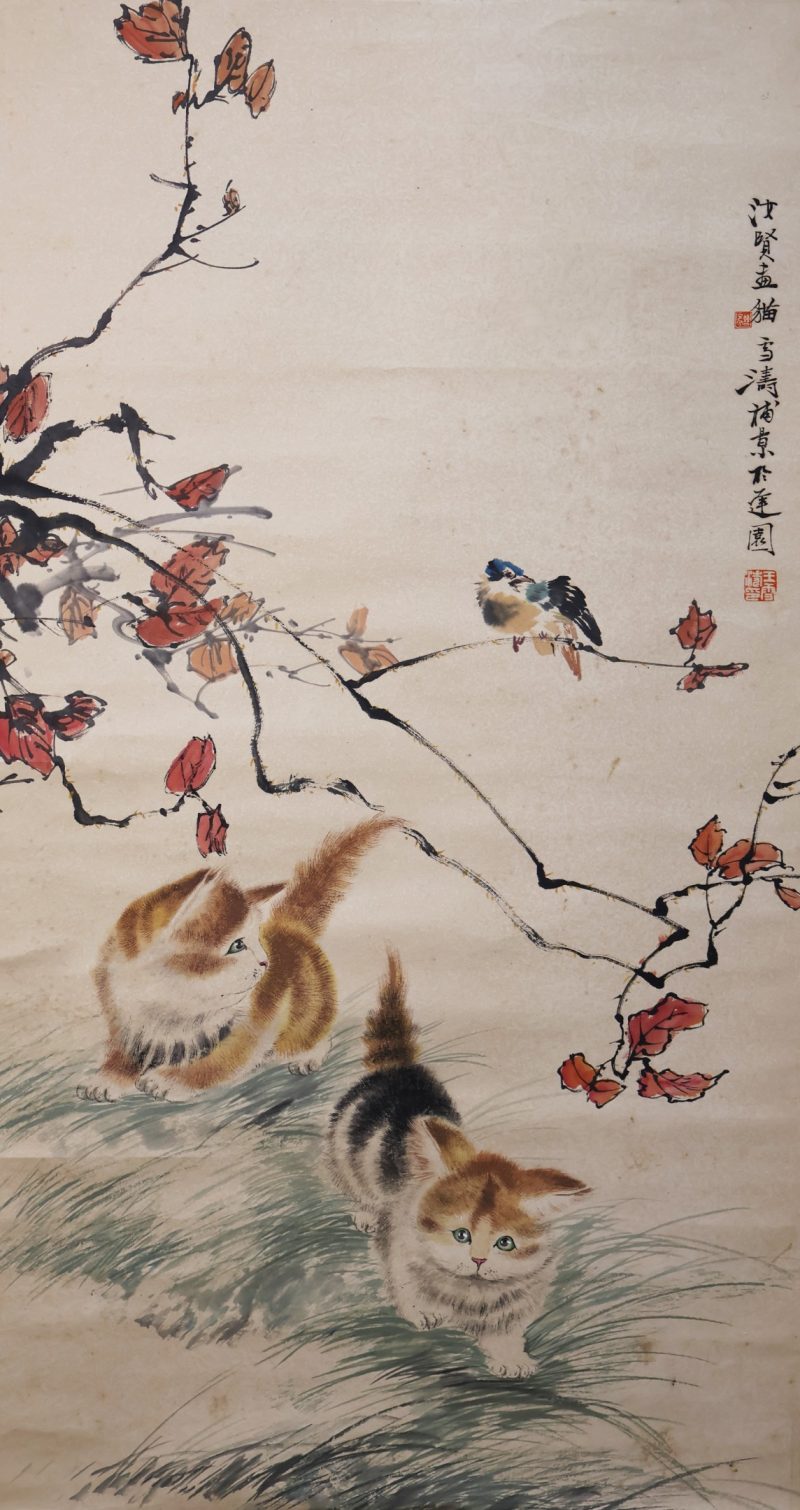 汝賢畫猫雪濤補景於蓮園